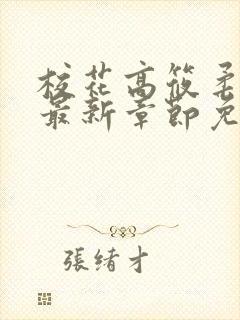 校花高筱柔
最新章節免
張緒才